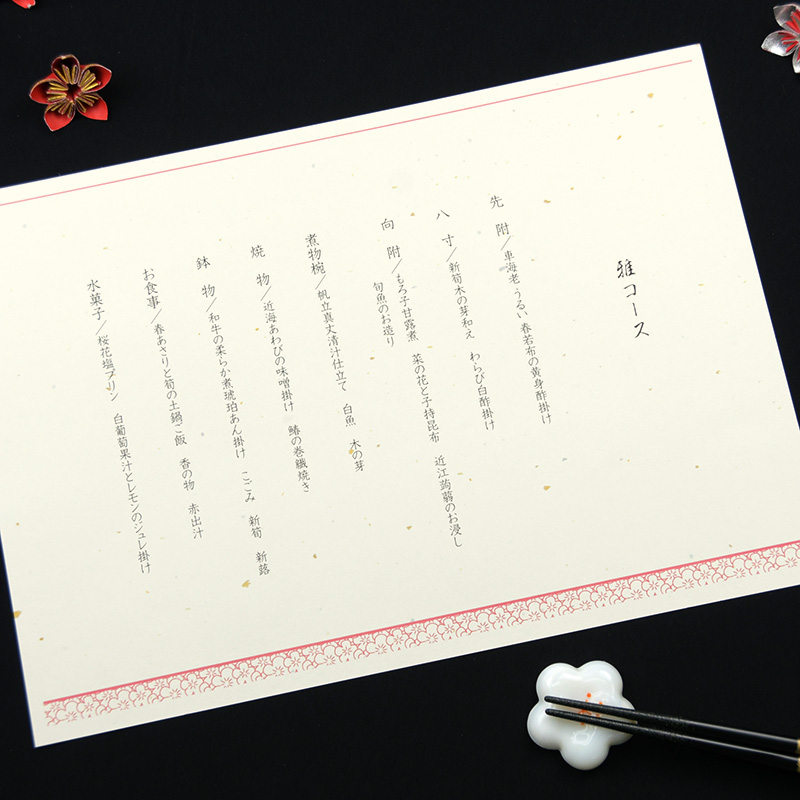 雅コース
先附／車海老 うるい 春若布の黄身酢掛け
八寸／新筍木の芽和え わらび白酢掛け
向附／もろ子甘露煮 菜の花と子持昆布 近江蒟蒻のお浸し
旬魚のお造り
煮物椀／帆立真丈清汁仕立て 白魚 木の芽
焼物／近海あわびの味噌掛け 鰆の巻繊焼き
鉢物／和牛の柔らか煮琥珀あん掛け こごみ 新筍 新蕗
お食事／春あさりと筍の土鍋ご飯 香の物 赤出汁
水菓子／桜花塩プリン 白葡萄果汁とレモンのジュレ掛け